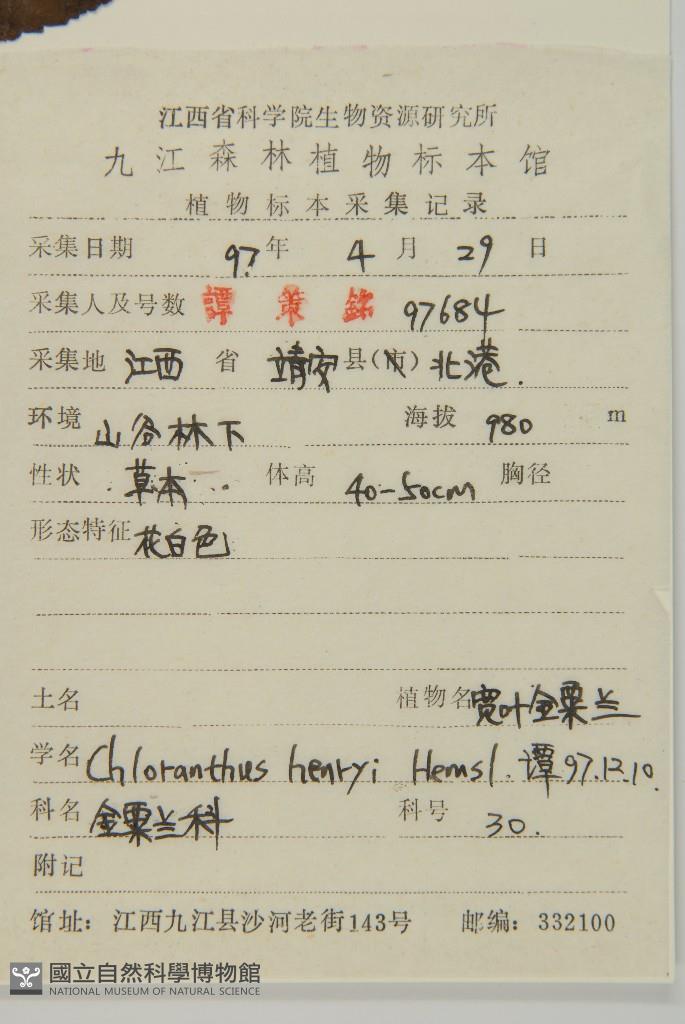 江西省科学院生物资源研究所
九江森林植物标本馆
植物标本采集记录
采集日期 97年 4月 29日
采集人及号数 譚策銘 97684
采集地 江西 省 靖安 县(市) 北港.
环境 山谷林下 海拔 980 m
性状 草本 体高 40-50cm 胸径
形态特征 花白色
土名 植物名 宽叶金粟兰
学名 Chloranthus henryi Hemsl. 譚 97.12.10.
科名 金粟兰科 科号 30.
附记
馆址：江西九江县沙河老街143号 邮编：332100
國立自然科學博物館
NATIONAL MUSEUM OF NATURAL SCIENCE